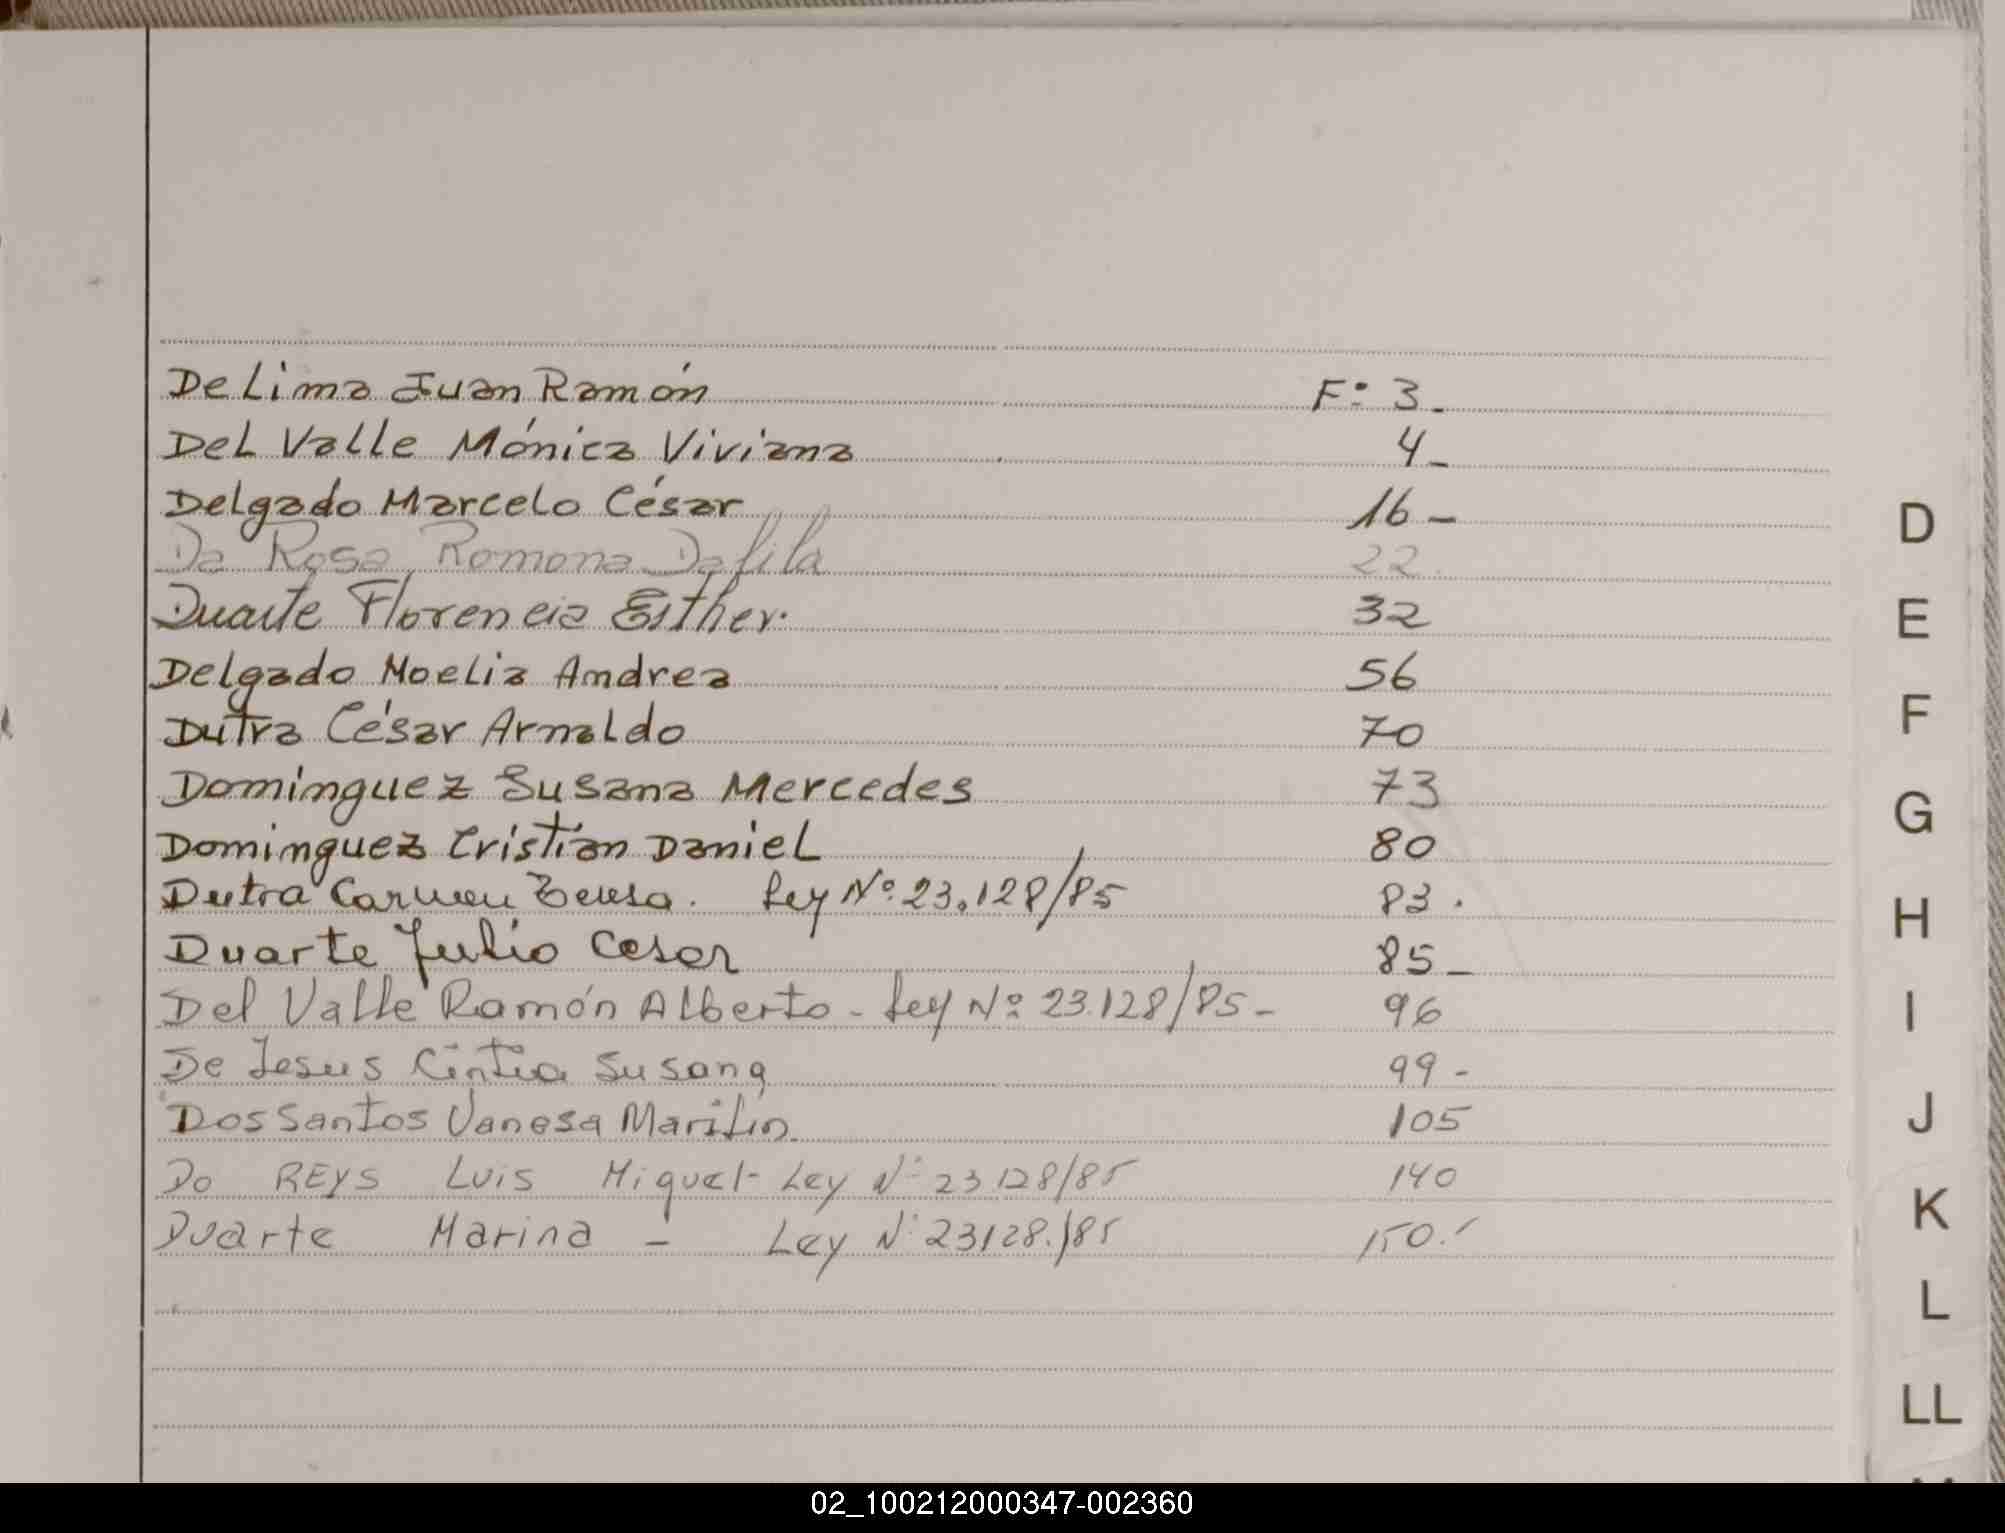 De Lima Juan Ramón F: 3_
Del Valle Mónica Viviana 4_
Delgado Marcelo César 16_
Da Rosa Ramona Dafila 22
Duarte Florencia Esther. 32
Delgado Noelia Andrea 56
Dutra César Arnaldo 70
Dominguez Susana Mercedes 73
Dominguez Cristian Daniel 80
Dutra Carmen Teresa. Ley Nº. 23.128/85 83.
Duarte Julio Cesar 85_
Del Valle Ramón Alberto - Ley Nº 23.128/85- 96
De Jesus Cintia Susana 99-
Dos Santos Vanesa Marilin 105
Do REYS Luis Miguel- Ley N: 23128/85 140
Duarte Marina - Ley N: 23128./85 150.
D
E
F
G
H
I
J
K
L
LL
02_100212000347-002360